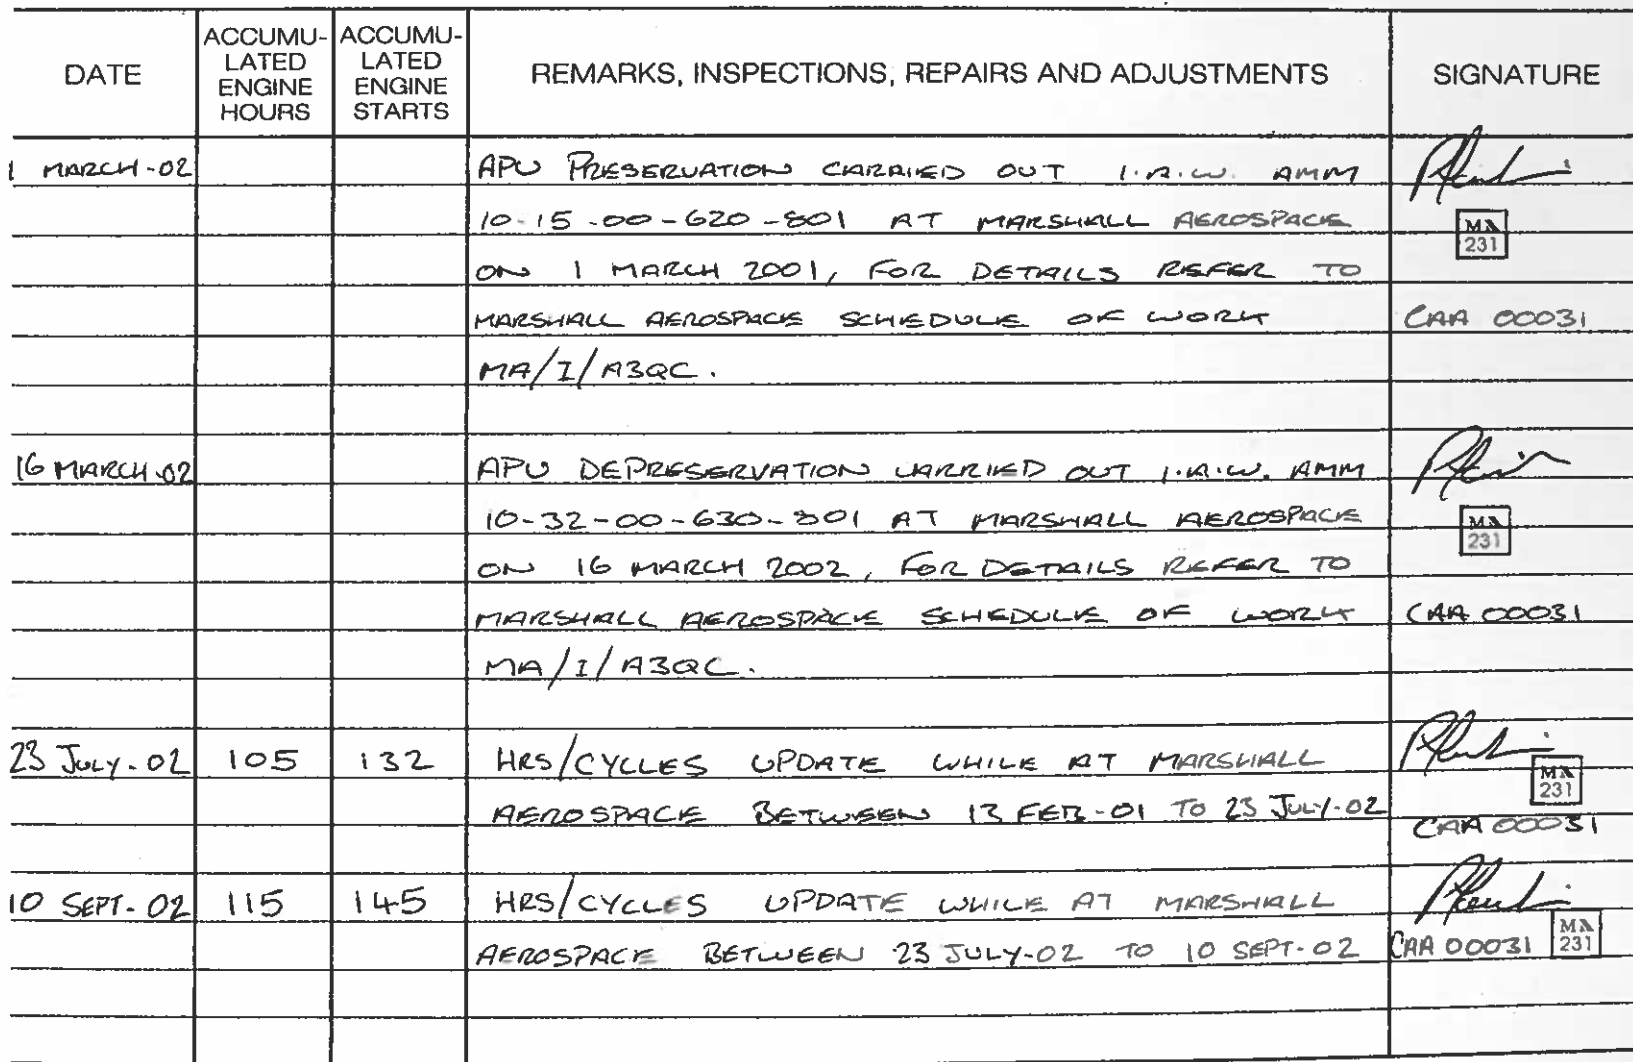 DATE ACCUMU-LATED ENGINE HOURS ACCUMU-LATED ENGINE STARTS REMARKS, INSPECTIONS, REPAIRS AND ADJUSTMENTS SIGNATURE
1 MARCH-02 APU PRESERVATION CARRIED OUT I.A.W. AMM
10-15-00-620-801 AT MARSHALL AEROSPACE MA 231
ON 1 MARCH 2001, FOR DETAILS REFER TO
MARSHALL AEROSPACE SCHEDULE OF WORK CAA 00031
MA/I/A3QC.
16 MARCH-02 APU DEPRESERVATION CARRIED OUT I.A.W. AMM
10-32-00-630-801 AT MARSHALL AEROSPACE MA 231
ON 16 MARCH 2002, FOR DETAILS REFER TO
MARSHALL AEROSPACE SCHEDULE OF WORK CAA 00031
MA/I/A3QC.
23 JULY-02 105 132 HRS/CYCLES UPDATE WHILE AT MARSHALL MA 231
AEROSPACE BETWEEN 13 FEB-01 TO 23 JULY-02 CAA 00031
10 SEPT-02 115 145 HRS/CYCLES UPDATE WHILE AT MARSHALL
AEROSPACE BETWEEN 23 JULY-02 TO 10 SEPT-02 CAA 00031 MA 231